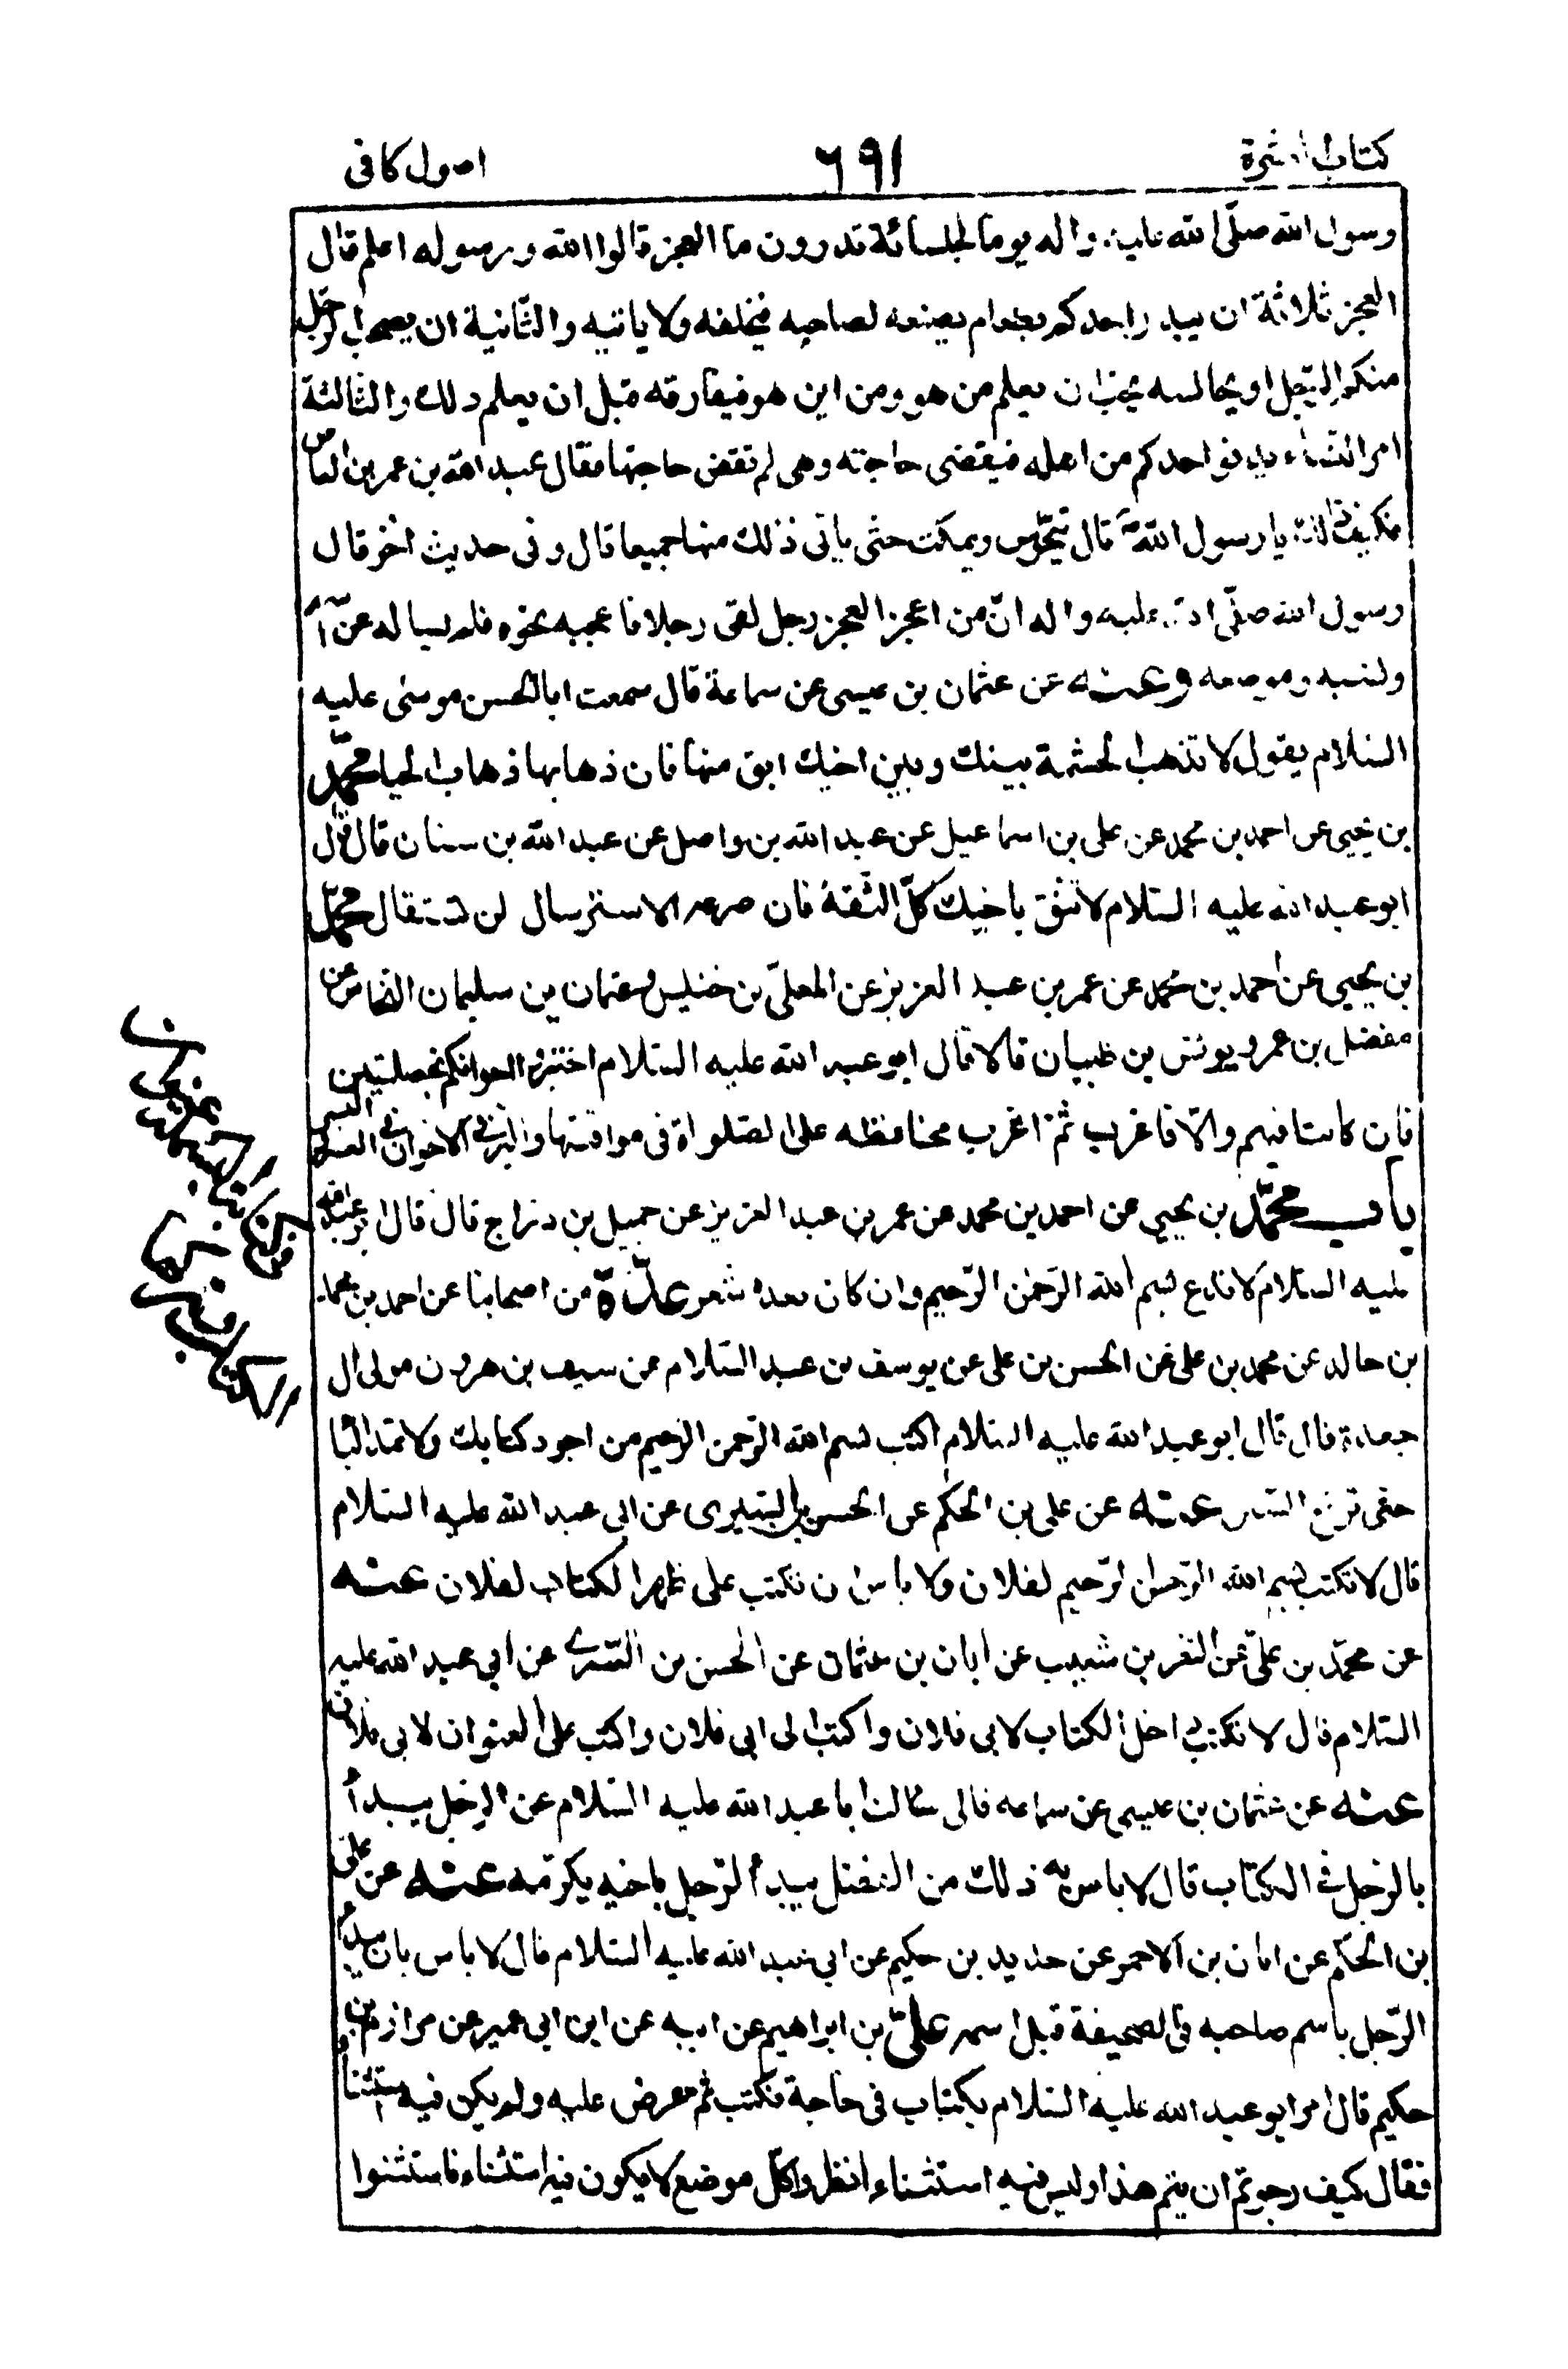 كتاب العشرة
٦٩١
اصول كافی
رسول الله صلّى الله عليه واله يوما لجلسائه تدرون ما العجز قالوا الله ورسوله اعلم قال
العجز ثلاثة ان يبدر احدكم بطعام يصنعه لصاحبه فيخلفه ولا ياتيه والثّانية ان يصحب الرّجل
منكم الرّجل او يجالسه يحبّ ان يعلم من هو ومن اين هو فيفارقه قبل ان يعلم ذلك والثالثة
امر النّساء يدنو احدكم من اهله فيقضى حاجته وهى لم تقض حاجتها فقال عبد الله بن عمرو بن العاص
فكيف ذلك يا رسول الله قال يتحوّس ويمكث حتّى ياتى ذلك منهما جميعا قال وفى حديث اخر قال
رسول الله صلّى الله عليه واله انّ من اعجز العجز رجل لقى رجلا فاعجبه نحوه فلم يساله عن اسمه
ونسبه وموضعه وعنه عن عثمان بن عيسى عن سماعة قال سمعت ابا الحسن موسى عليه
السّلام يقول لا تذهب الحشمة بينك وبين اخيك ابق منها فان ذهابها ذهاب الحياء محمّد
بن يحيى عن احمد بن محمد عن على بن اسماعيل عن عبد الله بن واصل عن عبد الله بن سنان قال قال
ابو عبد الله عليه السّلام لا تثق باخيك كلّ الثّقة فان صرعه الاسترسال لن تستقال محمّد
بن يحيى عن احمد بن محمد عن عمر بن عبد العزيز عن المعلّى بن خنيس وعثمان بن سليمان النخاس عن
مفضل بن عمر ويونس بن ظبيان قالا قال ابو عبد الله عليه السّلام اختبروا اخوانكم بخصلتين
فان كانتا فيهم والّا فاغرب ثمّ اغرب محافظه على الصّلواة فى مواقيتها والبرّ فى الاخوان فى العسر واليسر
باب محمّد بن يحيى عن احمد بن محمد عن عمر بن عبد العزيز عن جميل بن دراج قال قال ابو عبد الله
عليه السّلام لا تدع بسم الله الرّحمن الرّحيم وان كان بعده شعر عدّة من اصحابنا عن احمد بن محمد
بن خالد عن محمد بن على عن الحسن بن على عن يوسف بن عبد السّلام عن سيف بن هرون مولى ال
جعدة قال قال ابو عبد الله عليه السّلام اكتب بسم الله الرّحمن الرّحيم من اجود كتابك ولا تمدّ الباء
حتى ترفع السّين عنه عن على بن الحكم عن الحسن بن السّرى عن ابى عبد الله عليه السّلام
قال لا تكتب بسم الله الرّحمن الرّحيم لفلان ولا باس ان تكتب على ظهر الكتاب لفلان عنه
عن محمّد بن علىّ عن النضر بن شعيب عن ابان بن عثمان عن الحسن بن السّرى عن ابى عبد الله عليه
السّلام قال لا تكتب داخل الكتاب لابى فلان واكتب الى ابى فلان واكتب على العنوان لابى فلان
عنه عن عثمان بن عيسى عن سماعه قال سالت ابا عبد الله عليه السّلام عن الرجل يبدأ
بالرجل فى الكتاب قال لا باس به ذلك من الفضل يبدأ الرّجل باخيه يكرمه عنه عن على
بن الحكم عن ابان بن الاحمر عن حديد بن حكيم عن ابى عبد الله عليه السّلام قال لا باس بان يبدأ
الرّجل باسم صاحبه فى الصحيفة قبل اسمه علىّ بن ابراهيم عن ابيه عن ابن ابى عمير عن مرازم بن
حكيم قال امر ابو عبد الله عليه السّلام بكتاب فى حاجة فكتب ثم عرض عليه ولم يكن فيه استثناء
فقال كيف رجوتم ان يتم هذا وليس فيه استثناء انظروا كلّ موضع لا يكون فيه استثناء فاستثنوا